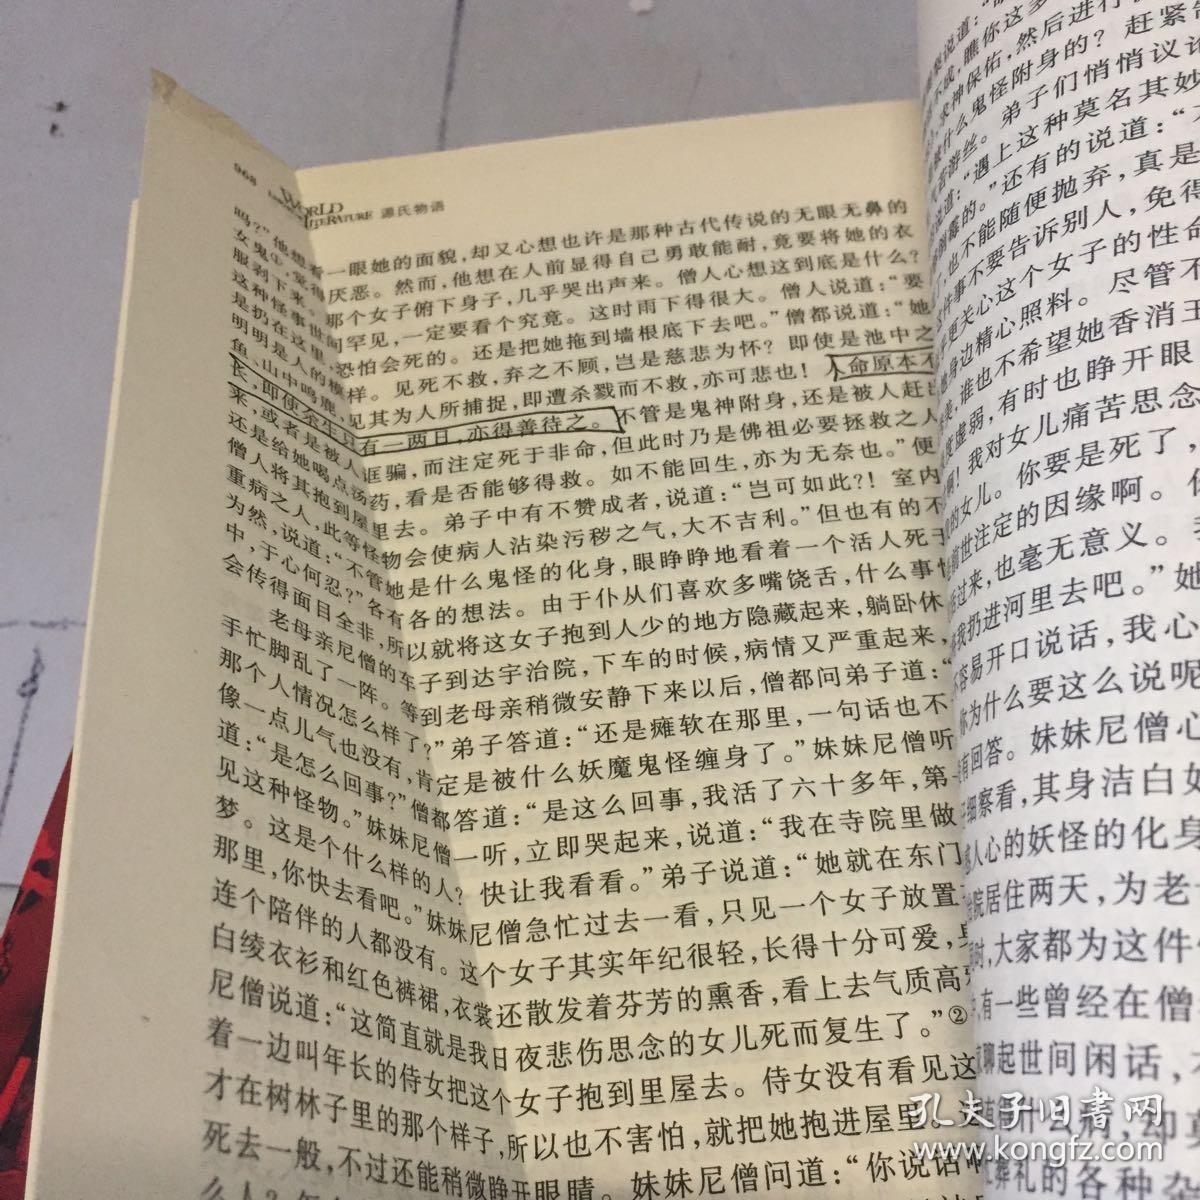 968 WORLD LITERATURE 源氏物语
吗？”他想看一眼她的面貌，却又心想也许是那种古代传说的无眼无鼻的
女鬼①，觉得厌恶。然而，他想在人前显得自己勇敢能耐，竟要将她的衣
服剥下来。那个女子俯下身子，几乎哭出声来。僧人心想这到底是什么？
这种怪事世间罕见，一定要看个究竟。这时雨下得很大。僧人说道：“要
是扔在这里，恐怕会死的。还是把她拖到墙根底下去吧。”僧都说道：“她
明明是人的模样。见死不救，弃之不顾，岂是慈悲为怀？即使是池中之
鱼、山中鸣鹿，见其为人所捕捉，即遭杀戮而不救，亦可悲也！人命原本不
长，即使余生只有一两日，亦得善待之。不管是鬼神附身，还是被人赶出
来，或者是被人诓骗，而注定死于非命，但此时乃是佛祖必要拯救之人
还是给她喝点汤药，看是否能够得救。如不能回生，亦为无奈也。”便
僧人将其抱到屋里去。弟子中有不赞成者，说道：“岂可如此？！室内
重病之人，此等怪物会使病人沾染污秽之气，大不吉利。”但也有的不
为然，说道：“不管她是什么鬼怪的化身，眼睁睁地看着一个活人死于
中，于心何忍？”各有各的想法。由于仆从们喜欢多嘴饶舌，什么事情
会传得面目全非，所以就将这女子抱到人少的地方隐藏起来，躺卧休
老母亲尼僧的车子到达宇治院，下车的时候，病情又严重起来，
手忙脚乱了一阵。等到老母亲稍微安静下来以后，僧都问弟子道：“
那个人情况怎么样了？”弟子答道：“还是瘫软在那里，一句话也不
像一点儿气也没有，肯定是被什么妖魔鬼怪缠身了。”妹妹尼僧听
道：“是怎么回事？”僧都答道：“是这么回事，我活了六十多年，第一
见这种怪物。”妹妹尼僧一听，立即哭起来，说道：“我在寺院里做
梦。这是个什么样的人？快让我看看。”弟子说道：“她就在东门
那里，你快去看吧。”妹妹尼僧急忙过去一看，只见一个女子放置
连个陪伴的人都没有。这个女子其实年纪很轻，长得十分可爱，身
白绫衣衫和红色裤裙，衣裳还散发着芬芳的熏香，看上去气质高
尼僧说道：“这简直就是我日夜悲伤思念的女儿死而复生了。”②
着一边叫年长的侍女把这个女子抱到里屋去。侍女没有看见这
才在树林子里的那个样子，所以也不害怕，就把她抱进屋里。这
死去一般，不过还能稍微睁开眼睛。妹妹尼僧问道：“你说话啊
么人？
说道：“
不成，瞧你这多
求神保佑，然后进行
被什么鬼怪附身的？赶紧
气若游丝。弟子们悄悄议论
说道：“遇上这种莫名其妙
倒霉的。”还有的说道：“
，也不能随便抛弃，真是
这件事不要告诉别人，免得
乎更关心这个女子的性命
她身边精心照料。尽管不
美，谁也不希望她香消玉
度虚弱，有时也睁开眼
啊！我对女儿痛苦思念
的女儿。你要是死了，
前世注定的因缘啊。你
活过来，也毫无意义。
将我扔进河里去吧。”她
不容易开口说话，我心
你为什么要这么说呢
有回答。妹妹尼僧心
仔细察看，其身洁白如
惑人心的妖怪的化身
治院居住两天，为老
同时，大家都为这件
，有一些曾经在僧
聊起世间闲话，
有得什么病，却
葬礼的各种杂
孔夫子旧书网
www.kongfz.com